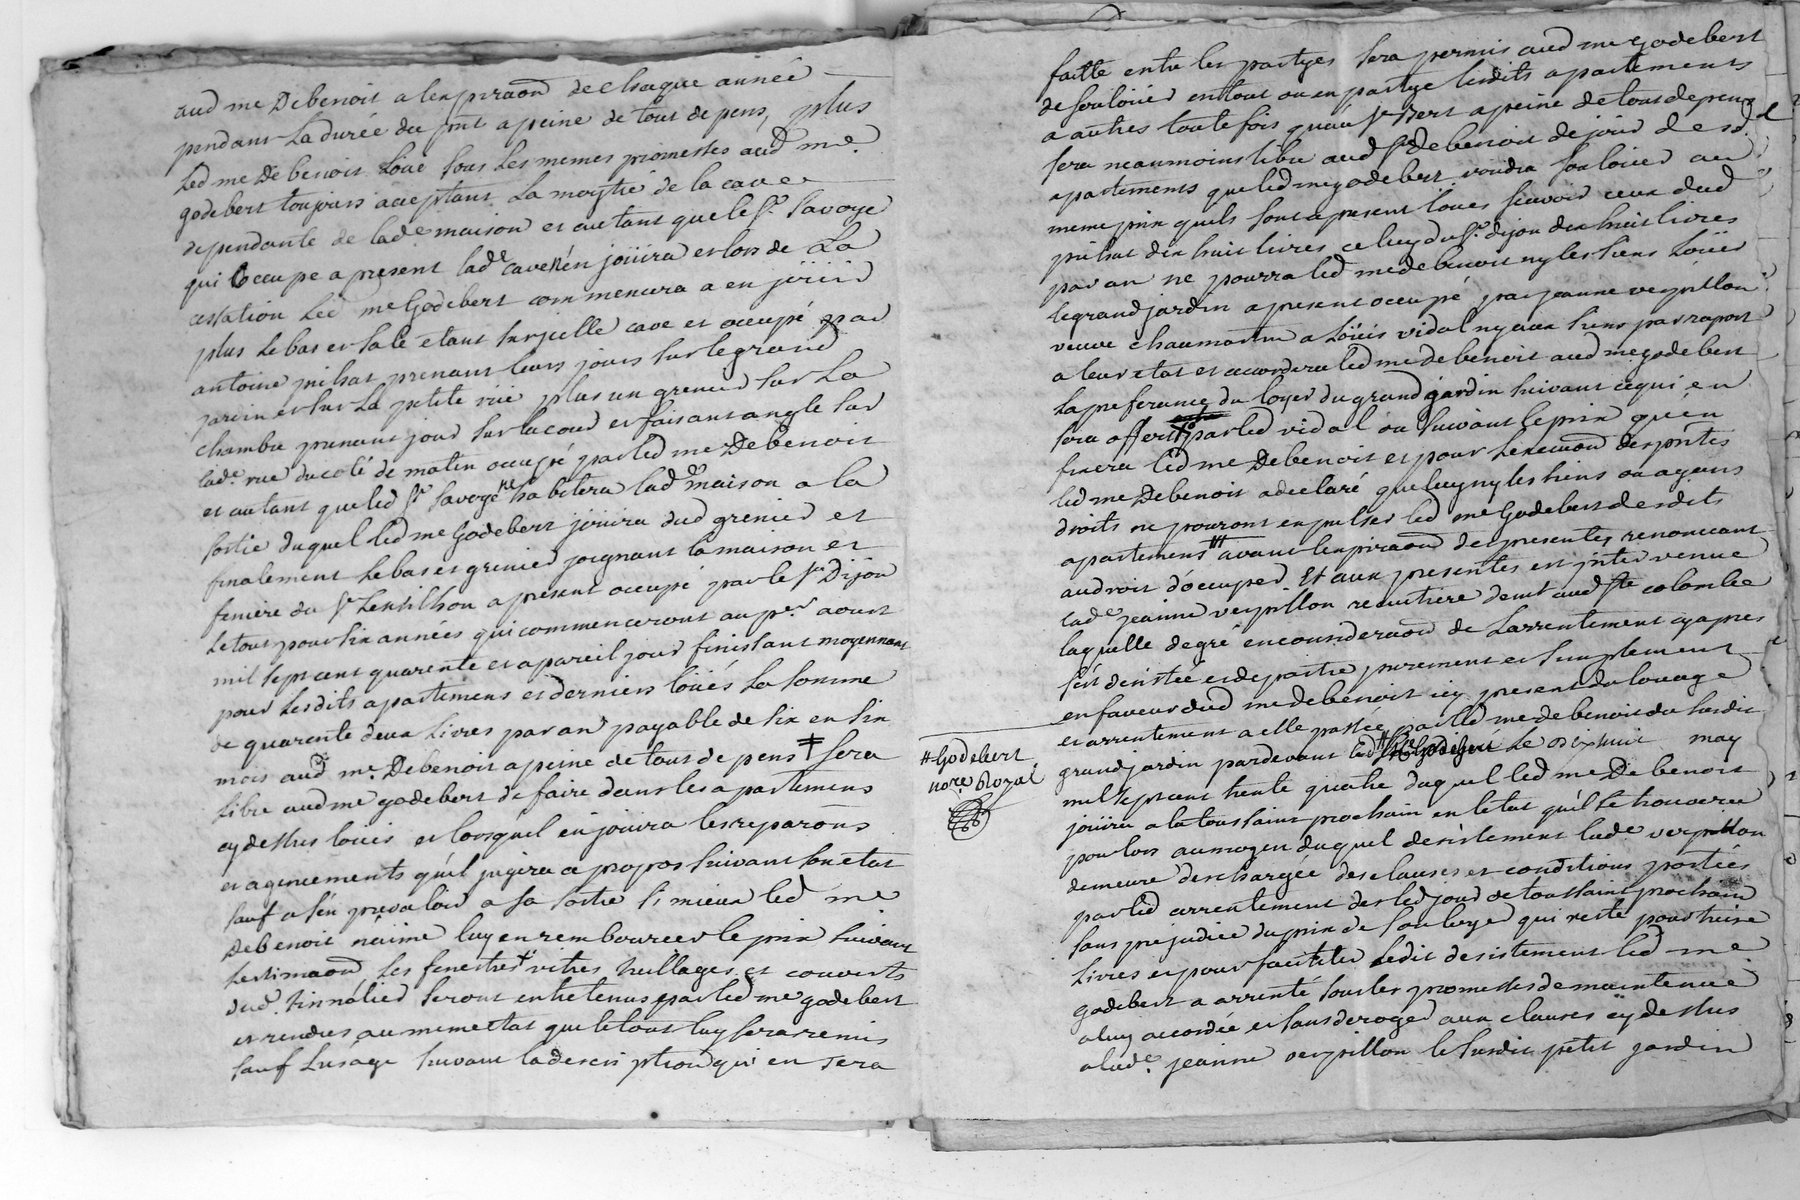 aud me Debenoit a lexpiraôn de chaque année
pendant la durée du pnt a peine de tous depens, plus
led me Debenoit loue sous les memes promesses aud me.
godebert toujours acceptant la moytié de la cave
dependante de lade maison et autant que le Sr. Savoye
qui occupe a present lade cave n'en joüira et lors de la
cessation led me Godebert commencera a en joüir
plus le bas et sale etant sur icelle cave et occupé par
antoine pichat prenant leurs jours sur le grand
jardin et sur la petite rüe plus un grenier sur la
chambre prenant jour sur la cour et faisant angle sur
lade. rue du coté de matin occupé par led me Debenoit
et autant que led Sr Savoye habitera lade maison a la
sortie duquel led me Godebert joüira dud grenier et
finalement le bas et grenier joignant la maison et
feniere du Sr Lentilhon a present occupé par le Sr Dijon
le tout pour six années qui commenceront au per aoust
mil sept cent quarente et a pareil jour finissant moyennant
pour lesdits apartemens et derniers loüés la somme
de quarente deux livres par an payable de six en six
mois aud. me. Debenoit a peine de tous depens ‡ sera
libre aud me godebert de faire dans les apartemens
cy dessus loués et lorsquel en jouira les reparôns
et agencements qu'il jugera a propos suivant son etat
sauf a s'en prevaloir a sa sortie si mieux led me
Debenoit n'aime luy en rembourcer le prix suivant
lestimaôn, les fenestres vitres hullages et couverts
dud. seront entretenus par led me godebert
et rendus au meme etat que le tout luy sera remis
sauf lusage suivant la description qui en sera
faitte entre les partyes sera permis aud me Godebert
de soulouer en tout ou en partye lesdits apartements
a autres toutefois qu'au Sr a peine de tous depens
sera neaumoins libre aud Sr Debenoit de jouir desd.
apartements que led me godebert voudra soulouer au
meme prix quels sont a present loués scavoir ceux dud
pichat dix huit livres celuy du Sr. dijon dix huit livres
par an ne pourra led me debenoit ny les siens loüer
le grand jardin a present occupé par jeanne verpillon
veuve chaumartin a Loüis vidal ny aux siens par raport
a leur etat et accordera led me debenoit aud me godebert
la preferance du loyer du grand jardin suivant ce qui en
sera offert par led vidal ou suivant le prix qu'en
fixera led me Debenoit et pour lexecuôn des pntes
led me Debenoit a declaré que luy ny les siens ou ayans
droits ne pouront expulser led me Godebert desdits
apartemens avant lexpiraôn des presentes renoncant
au droit d'occuper. Et aux presentes est intervenue
lade jeanne verpillon demt aud Ste colombe
laquelle de gré en consideraôn de larrentement cy apres
s'est desistée et departie purement et simplement
en faveur dud me debenoit icy present du louage
et arrentement a elle passée par led me debenoit du susdit
grand jardin pardevant led Godebert le dixhuit may
# Godebert
nore. Royal
mil sept cent trente quatre duquel led me Debenoit
joüira a la toussaint prochain en letat qu'il se trouvera
pour lors au moyen duquel desistement lade verpillon
demeure deschargée des clauses et conditions portées
par led arrentement des led jour de toussaint prochain
sans prejudice du prix de son loyer qui reste pour treize
livres et pour faciliter ledit desistement led me
godebert a arrenté sous les promesses de maintenüe
a luy accordée et sans deroger aux clauses cy dessus
a lade. jeanne verpillon le susdit petit jardin